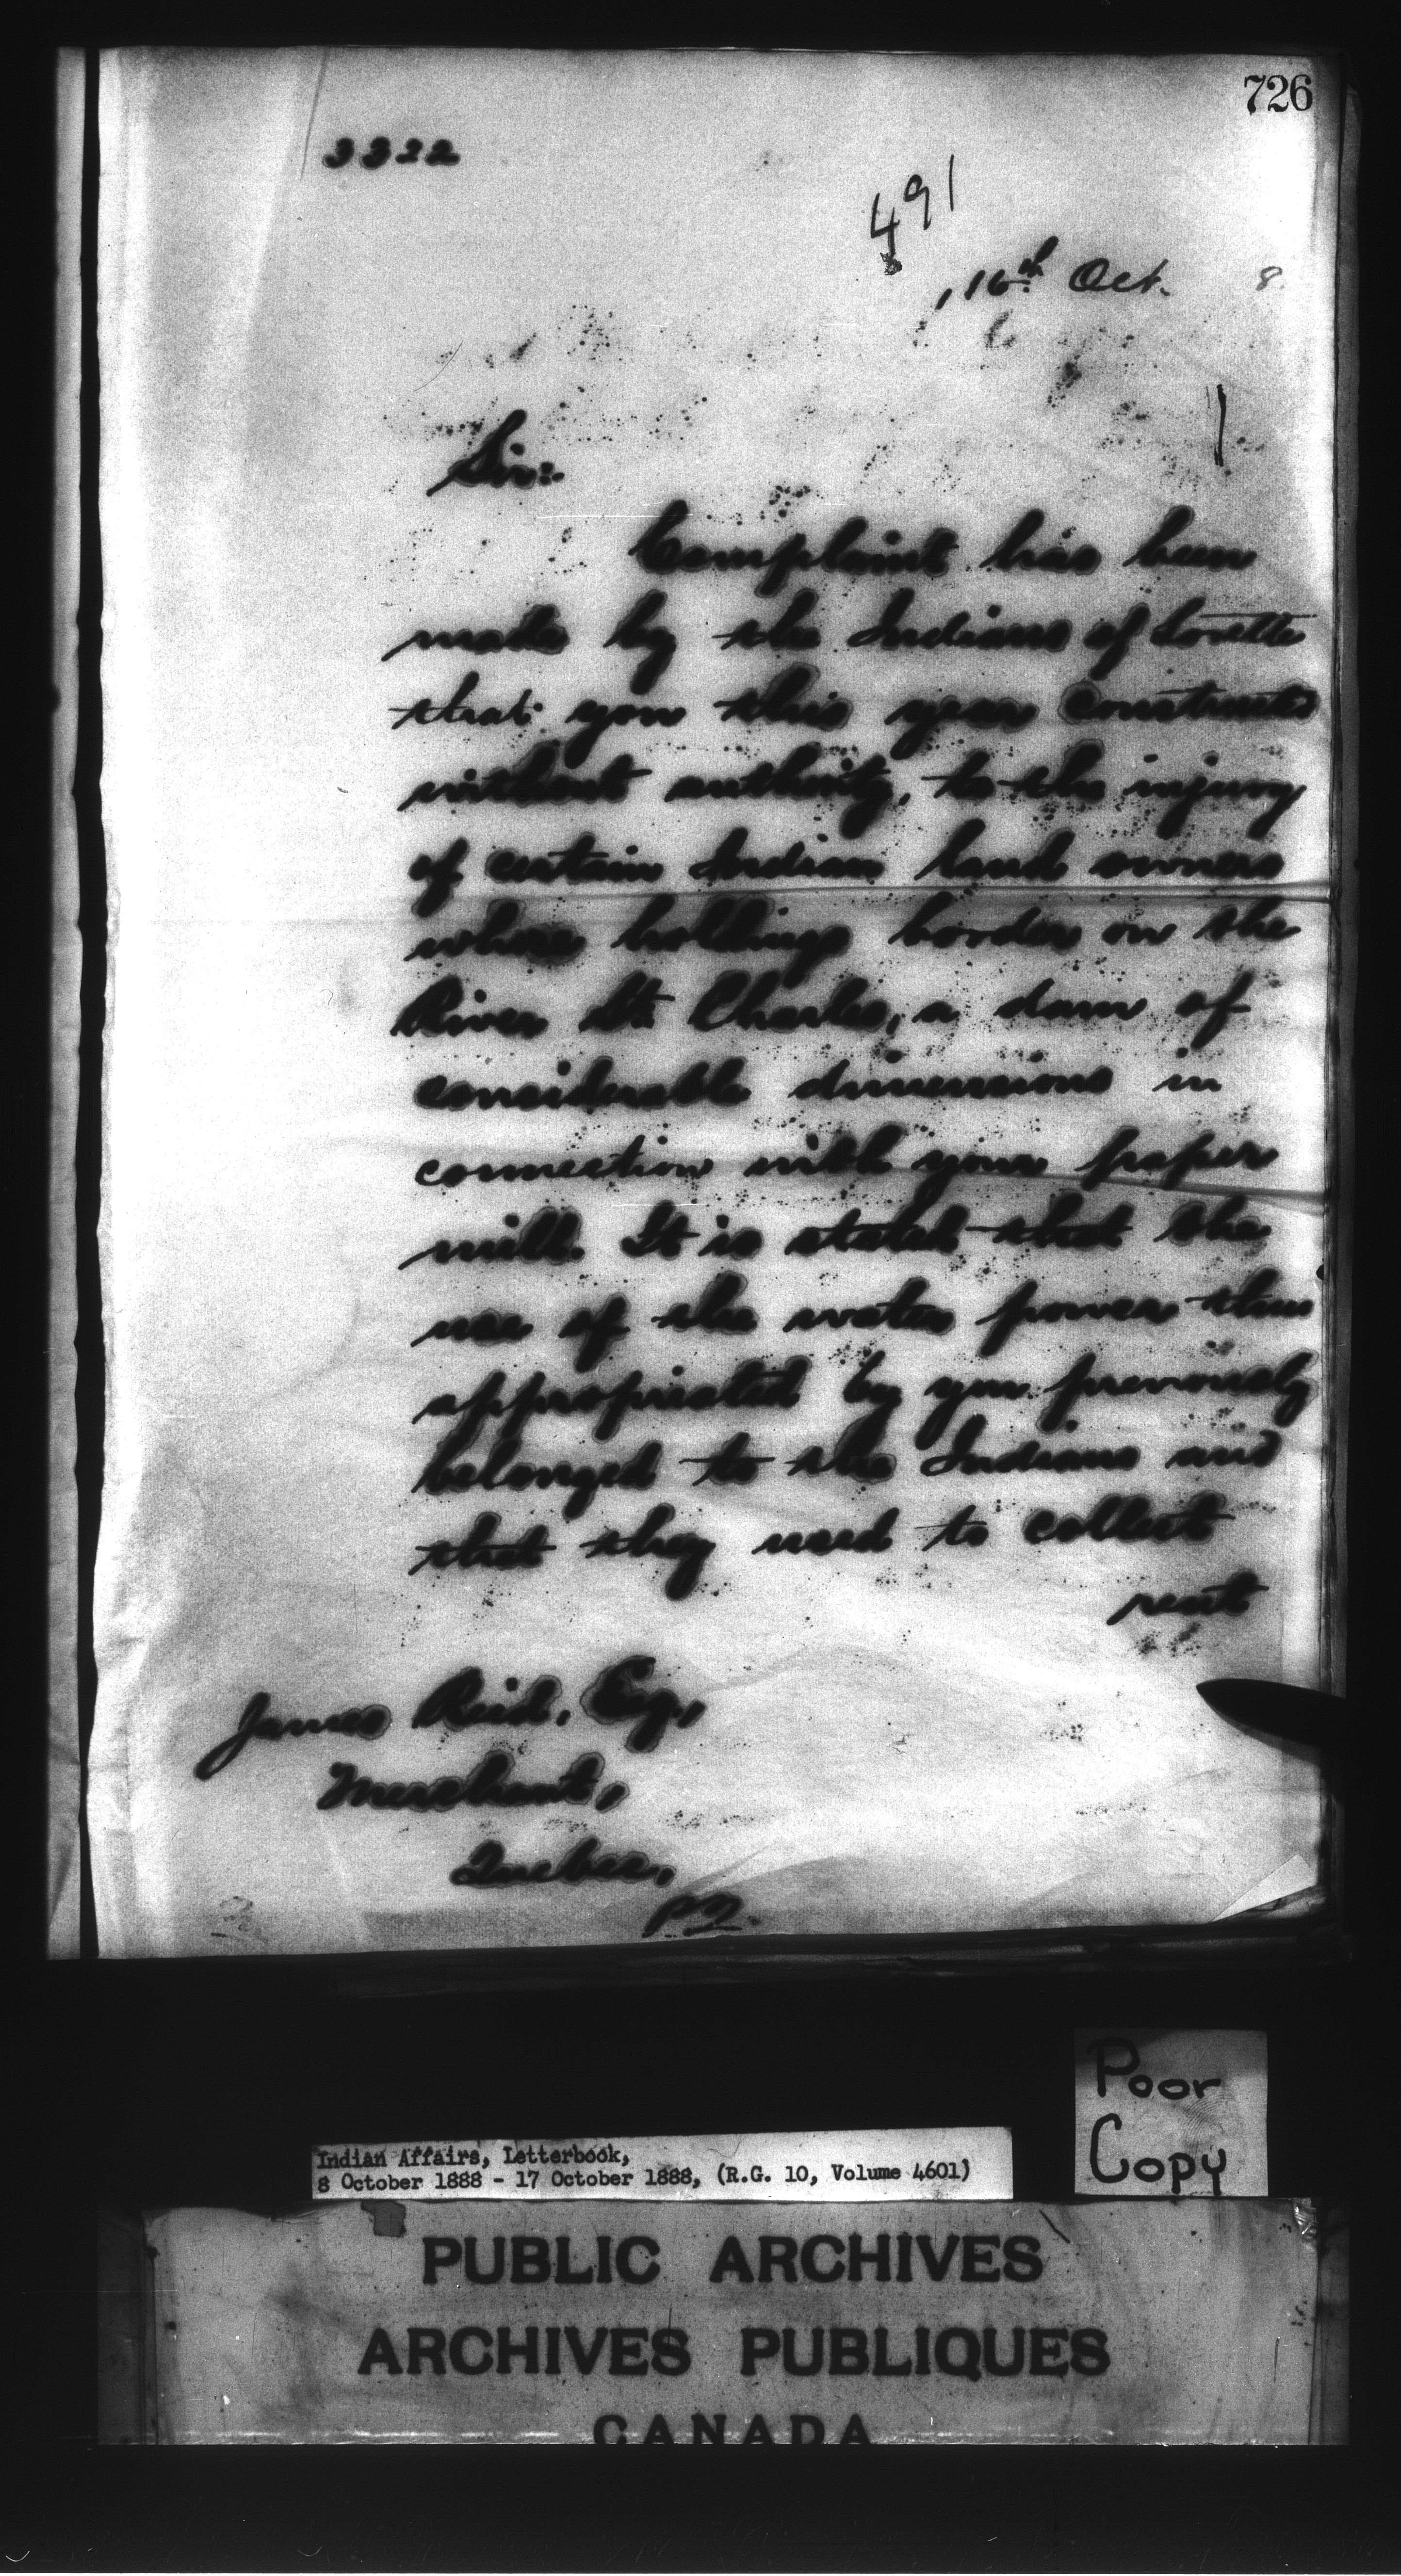 726
3322
491
, 16th Oct. 8.
Sir:-
Complaint has been
made by the Indians of Lorette
that you this year constructed
without authority, to the injury
of certain Indian land owners
whose holdings border on the
River St. Charles, a dam of
considerable dimensions in
connection with your paper
mill. It is stated that the
use of the water power thus
appropriated by you previously
belonged to the Indians and
that they used to collect
rent
James Reid, Esq.,
Merchant,
Quebec,
P.Q.
Poor
Copy
Indian Affairs, Letterbook,
8 October 1888 - 17 October 1888, (R.G. 10, Volume 4601)
PUBLIC ARCHIVES
ARCHIVES PUBLIQUES
CANADA